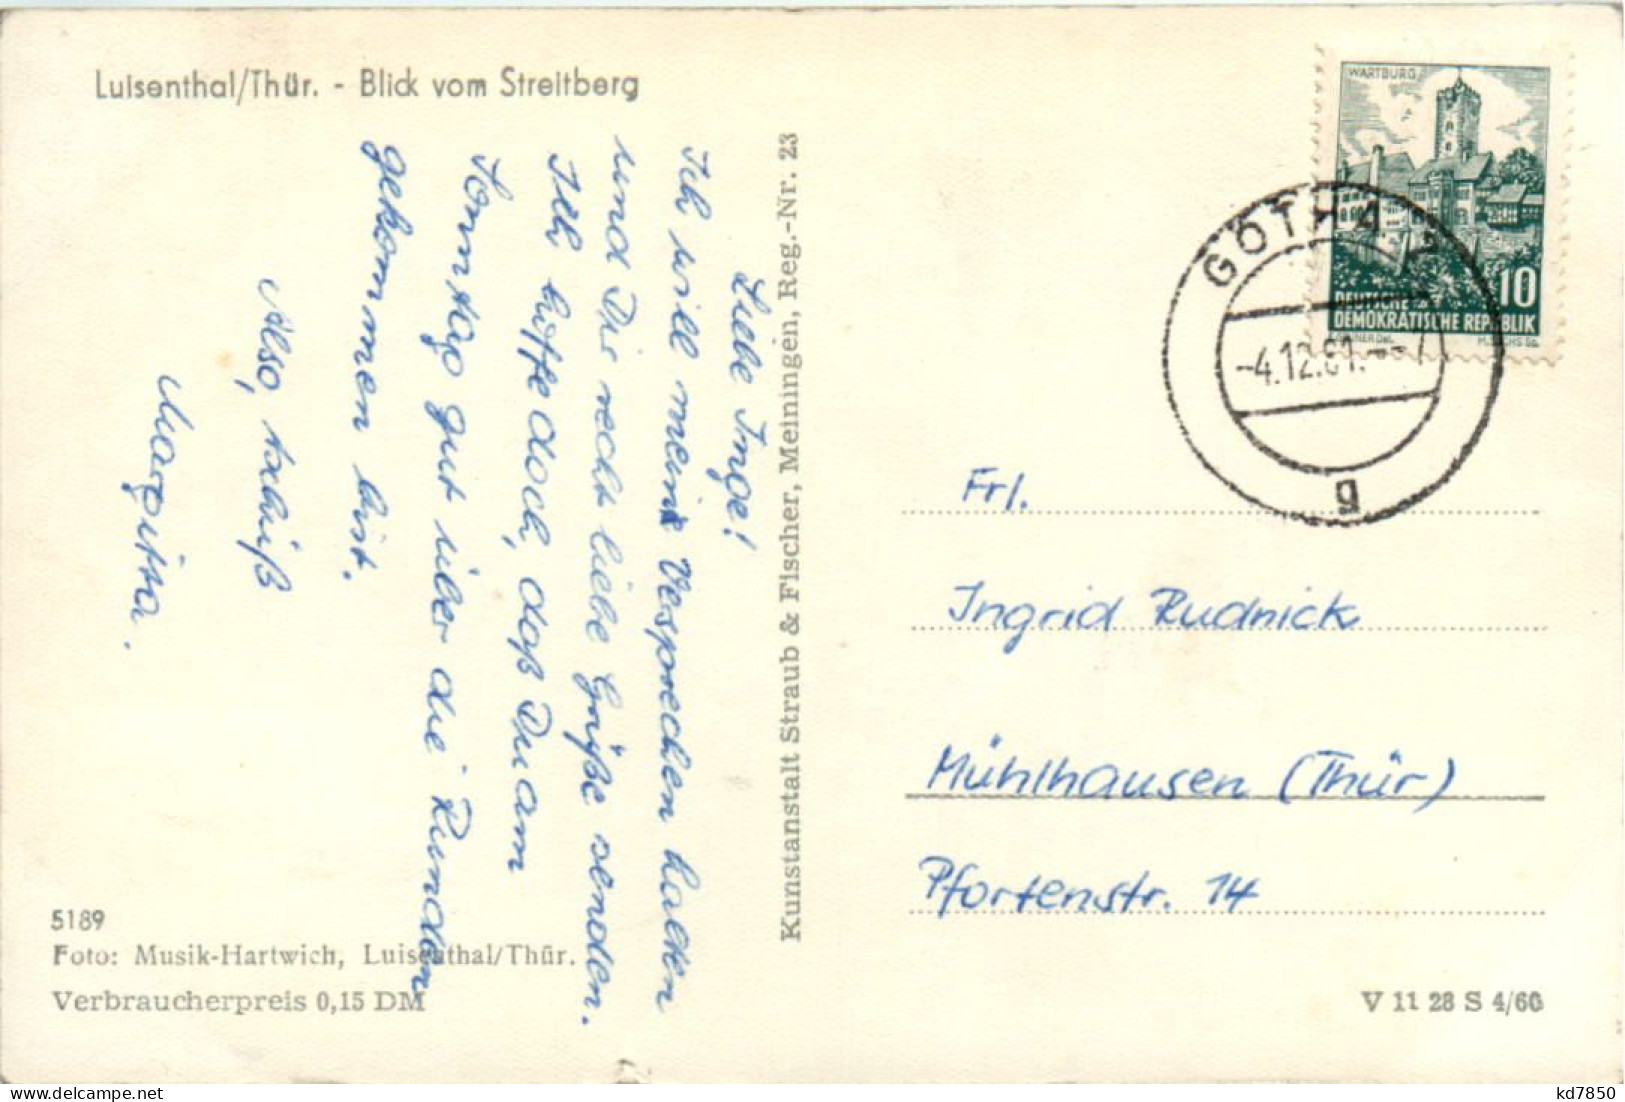 Luisenthal/Thür. - Blick vom Streitberg
Liebe Inge!
Ich will mein Versprechen halten
und Dir recht liebe Grüße senden.
Ich hoffe doch, daß Du am
Sonntag gut über die Runden
gekommen bist.
Also, tschüß
Margitta.
5189
Foto: Musik-Hartwich, Luisenthal/Thür.
Verbraucherpreis 0,15 DM
Kunstanstalt Straub & Fischer, Meiningen, Reg.-Nr. 23
WARTBURG
10
DEUTSCHE
DEMOKRATISCHE REPUBLIK
GOTHA 2
-4.12.61.
g
Frl.
Ingrid Rudnick
Mühlhausen (Thür)
Pfortenstr. 14
V 11 28 S 4/60
kd7850